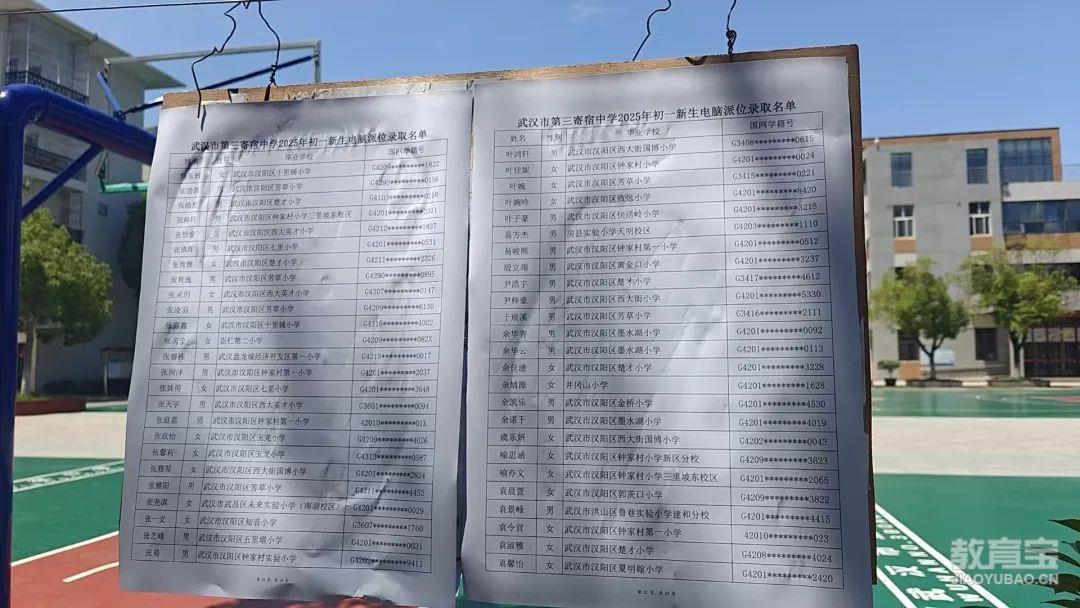 武汉市第三寄宿中学2025年初一新生电脑派位录取名单
毕业学校 国网学籍号
女 武汉市汉阳区十里铺小学 G4209*********1822
女 武汉市汉阳区芳草小学 G4290*********0156
男 武汉市汉阳区楚才小学 G4103*********0210
张赫轩 男 武汉市汉阳区钟家村小学三里坡东校区 G4201*********2011
张恒睿 男 武汉市汉阳区西大英才小学 G4212*********1837
张洪晖 男 武汉市汉阳区七里小学 G4201*********0531
张隽雅 女 武汉市汉阳区楚才小学 G4211*********2326
张隽逸 男 武汉市汉阳区芳草小学 G4290*********0895
张灵玥 女 武汉市汉阳区西大英才小学 G4307*********0147
张凌羽 男 武汉市汉阳区芳草小学 G4209*********6130
张露鑫 女 武汉市汉阳区十里铺小学 G4116*********1022
张芮莹 女 崇仁第二小学 G4209*********082X
张睿栋 男 武汉盘龙城经济开发区第一小学 G4213*********0017
张润泽 男 武汉市汉阳区钟家村第一小学 G4201*********2037
张姝茜 女 武汉市汉阳区七里小学 G4201*********3648
张天宇 男 武汉市汉阳区西大英才小学 G3601*********0094
张庭嘉 男 武汉市汉阳区钟家村第一小学 42010*********013
张玟怡 女 武汉市汉阳区玉龙小学 G4209*********4026
张馨莉 女 武汉市汉阳区玉龙小学 G4313*********0587
张雅琴 女 武汉市汉阳区西大街国博小学 G4201*********2824
张雅阳 男 武汉市汉阳区芳草小学 G4211*********4452
张尧淇 女 武汉市武昌区未来实验小学（南湖校区） G4201*********0029
张一文 女 武汉市汉阳区知音小学 G3607*********1760
张艺峰 男 武汉市汉阳区五里墩小学 G4201*********0031
张易 男 武汉市汉阳区钟家村实验小学 G4202*********9411
武汉市第三寄宿中学2025年初一新生电脑派位录取名单
姓名 性别 毕业学校 国网学籍号
叶鸿轩 男 武汉市汉阳区西大街国博小学 G3408*********0615
叶佳妮 女 武汉市汉阳区钟家村小学 G4201*********0024
叶婉 女 武汉市汉阳区芳草小学 G3415*********0221
叶婉吟 女 武汉市汉阳区致远小学 G4201*********8420
叶子豪 男 武汉市汉阳区快活岭小学 G4201*********3215
易方杰 男 房县实验小学天明校区 G4203*********1110
易峻熙 男 武汉市汉阳区钟家村第一小学 G4201*********0512
殷立翊 男 武汉市汉阳区黄金口小学 G4201*********3237
尹浩宇 男 武汉市汉阳区楚才小学 G3417*********4612
尹梓豪 男 武汉市汉阳区西大街小学 G4201*********5330
于宸溪 男 武汉市汉阳区芳草小学 G3416*********2111
余华青 男 武汉市汉阳区墨水湖小学 G4201*********0092
余华云 男 武汉市汉阳区墨水湖小学 G4201*********0113
余佳澺 女 武汉市汉阳区楚才小学 G4201*********3228
余婧源 女 井冈山小学 G4201*********1628
余凯乐 男 武汉市汉阳区金桥小学 G4201*********4530
余诺千 男 武汉市汉阳区墨水湖小学 G4201*********4019
虞乐妍 女 武汉市汉阳区西大街国博小学 G4202*********0043
喻思涵 女 武汉市汉阳区钟家村小学新区分校 G4209*********3623
喻亦文 女 武汉市汉阳区钟家村小学三里坡东校区 G4201*********2065
袁晨萱 女 武汉市汉阳区郭茨口小学 G4209*********3822
袁景峰 男 武汉市洪山区鲁巷实验小学建和分校 G4201*********4415
袁令宜 女 武汉市汉阳区钟家村第一小学 42010*********023
袁淑雅 女 武汉市汉阳区楚才小学 G4208*********4024
袁馨怡 女 武汉市汉阳区夏明翰小学 G4201*********2420
教育宝
JIAOYUBAO.CN